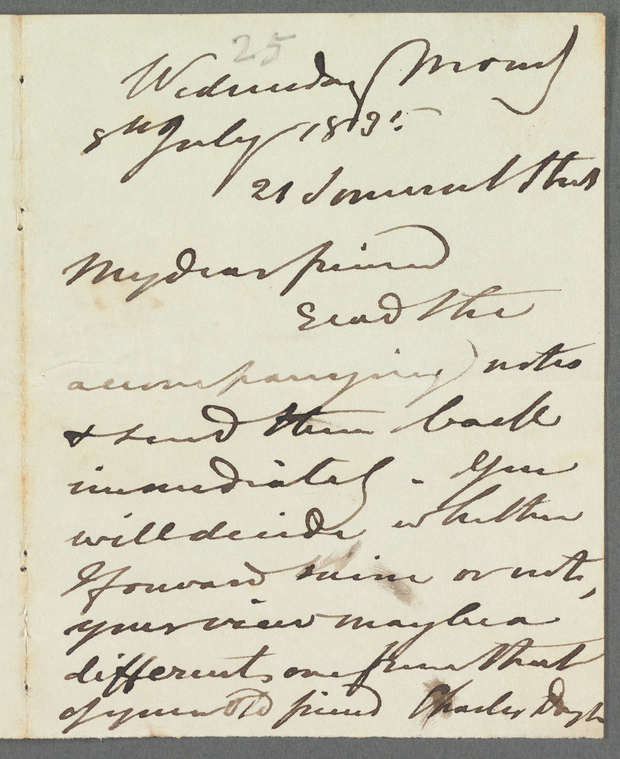 25
Wednesday Morng
8th July 1835
21 Somerset Street
My dear friend
Read the
accompanying notes
& send them back
immediately. You
will decide whether
I forward mine or not,
your view may be a
different one from that
of your old friend Charles